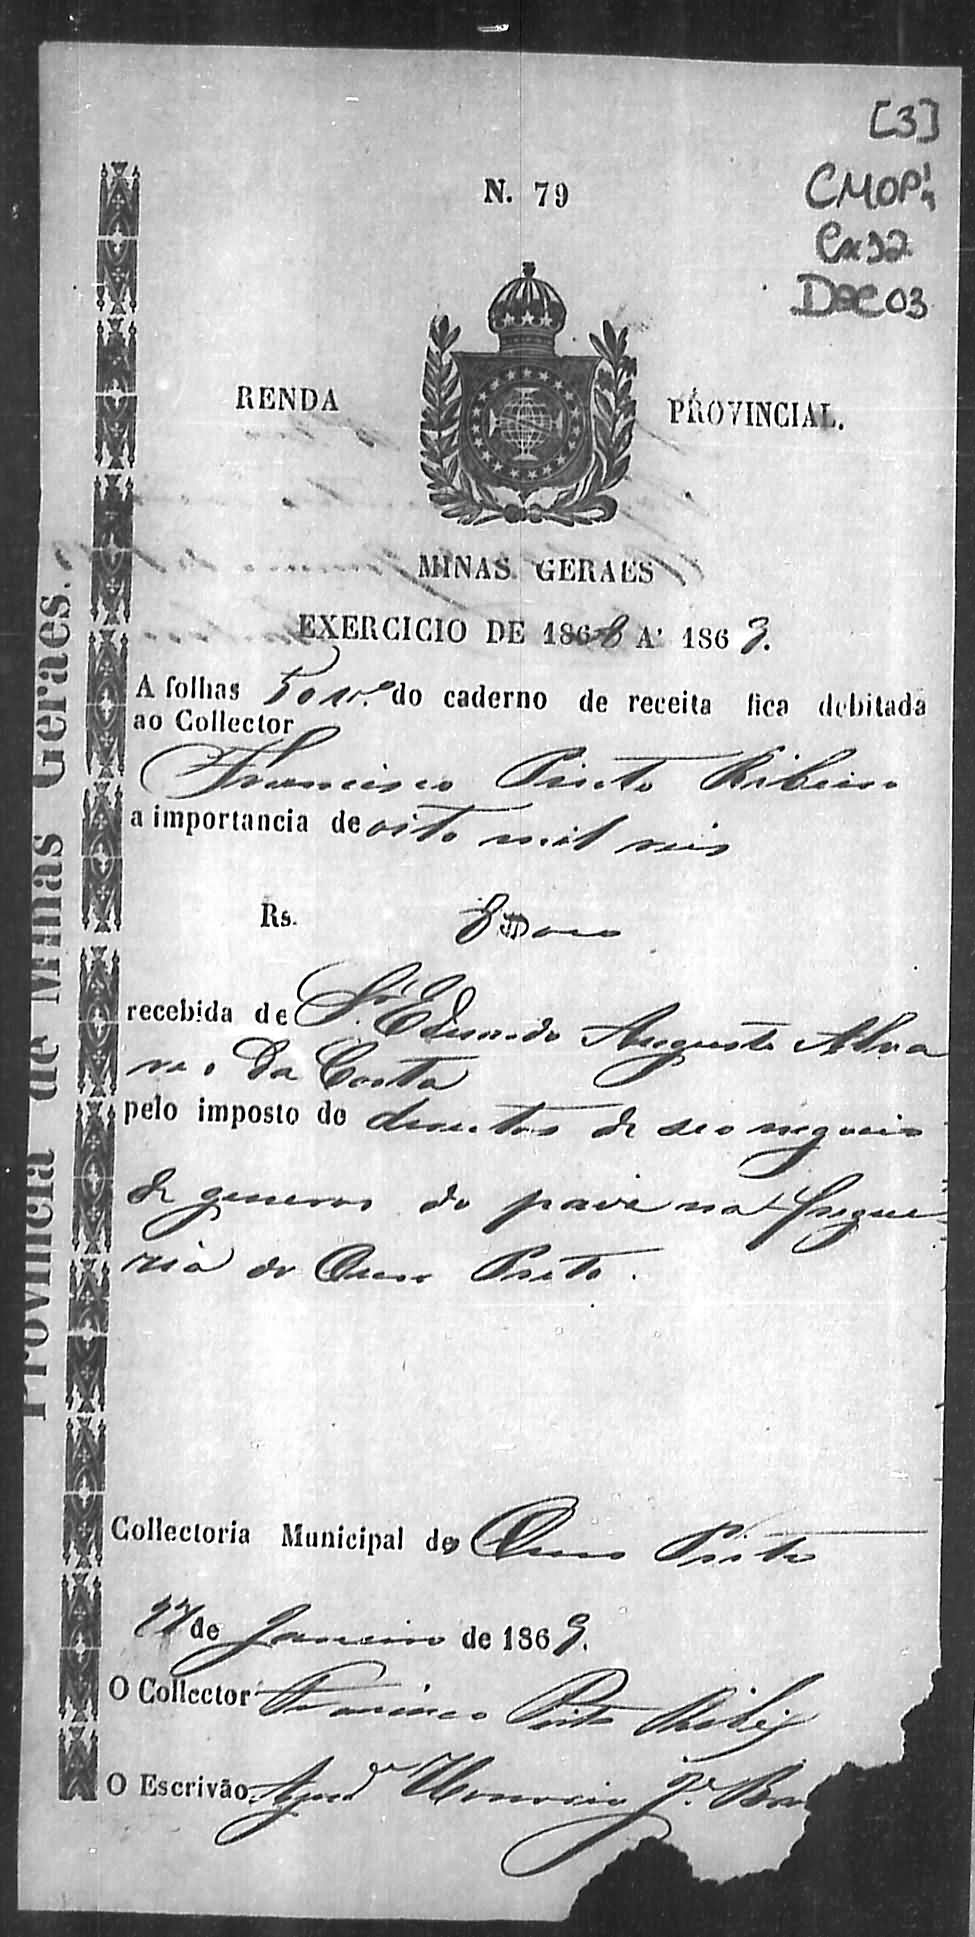 [3]
CMOP
Cx 32
Doc 03
N. 79
RENDA PROVINCIAL.
MINAS GERAES
EXERCICIO DE 1868 A' 1869.
A folhas 50 v.º do caderno de receita fica debitada
ao Collector
Francisco Pinto Ribeiro
a importancia de oito mil reis
Rs. 8$000
recebida de Sr. Eduardo Augusto Alva
res da Costa
pelo imposto de de seo negocio
de generos do paiz na fregue-
zia do Ouro Preto.
Collectoria Municipal do Ouro Preto
27 de Janeiro de 1869.
O Collector Francisco Pinto Ribr.º
O Escrivão Honorio J.
Provincia de Minas Geraes.